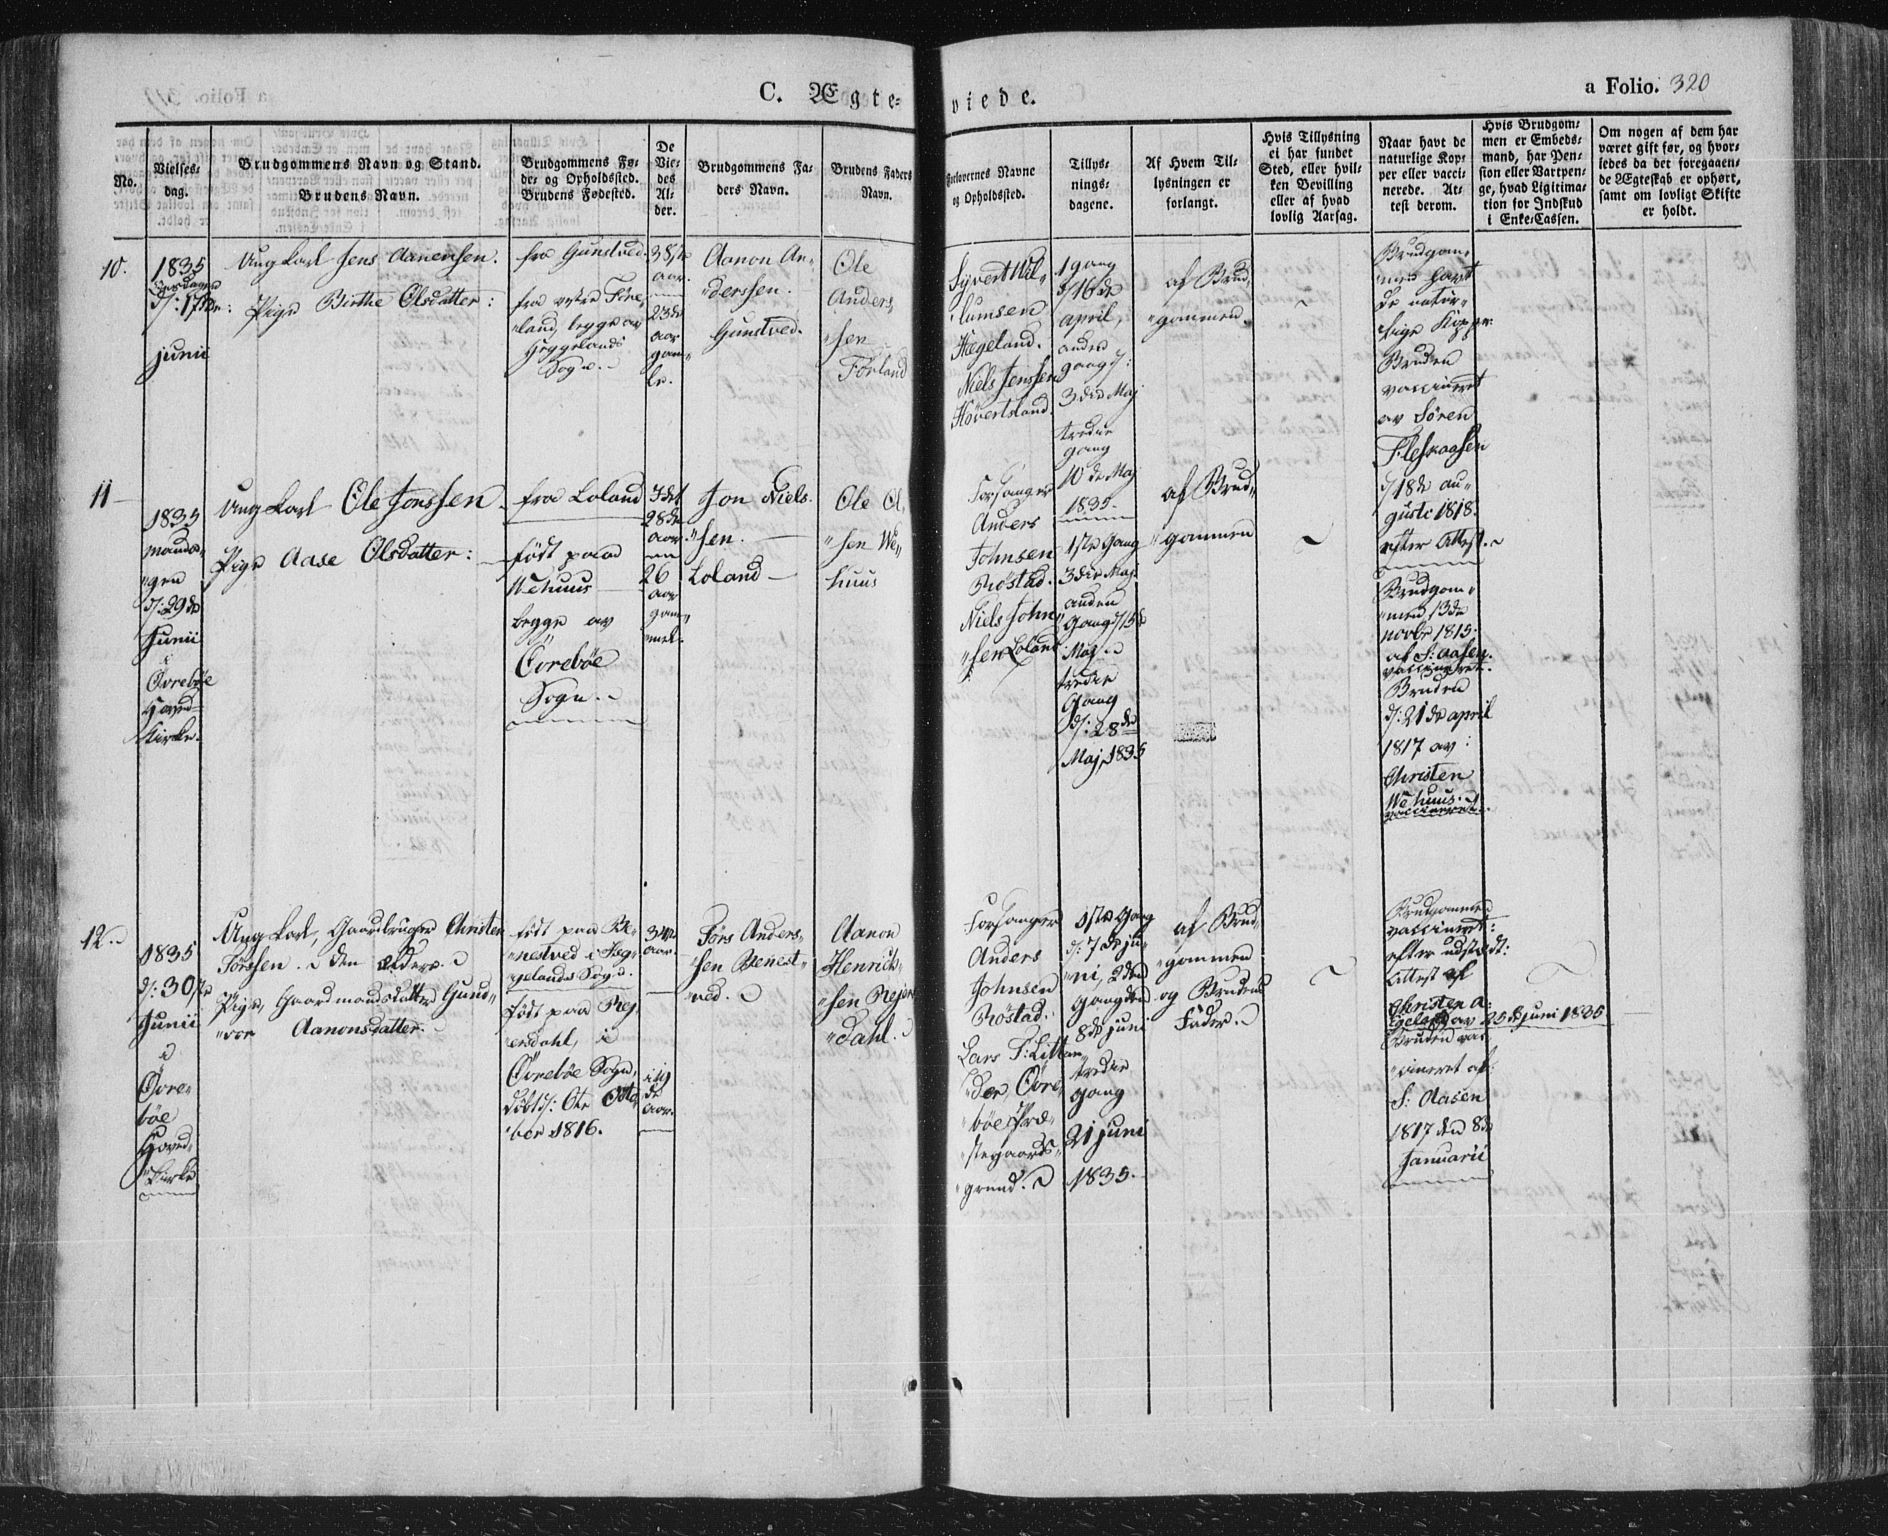 C. Ægte-
viede.
a Folio. 320
No.
Vielses-
dag.
Brudgommens Navn og Stand.
Brudens Navn.
Brudgommens Fø-
de- og Opholdssted.
Brudens Fødested.
De
Vie-
des
Al-
der.
Brudgommens Fa-
ders Navn.
Brudens Faders
Navn.
Forlovernes Navne
og Opholdssted.
Tillys-
nings-
dagene.
Af Hvem Til-
lysningen er
forlangt.
Hvis Tillysning
ei har fundet
Sted, eller hvil-
ken Bevilling
eller af hvad
lovlig Aarsag.
Naar havt de
naturlige Kop-
per eller vacci-
nerede. At-
test derom.
Hvis Brudgom-
men er Embeds-
mand, har Pen-
sion eller Vartpen-
ge, hvad Ligitima-
tion for Indskud
i Enke-Cassen.
Om nogen af dem har
været gift før, og hvor-
ledes da det foregaaen-
de Ægteskab er ophørt,
samt om lovligt Skifte
er holdt.
10.
1835
d: 17de
junii
Ungkarl Jens Aanensen.
Pige Birthe Olsdatter:
fra Gunstved.
fra ytre Føre-
land, begge av
Heggelands
Sogn.
38te
aar.
23de
aar
gam-
le.
Aanon An-
derssen.
Gunstved.
Ole
Anders-
sen
Förland
Syvert Wil-
lumsen
Hægeland.
Niels Jenssen
Høverstland.
1 gang
d/16de
april,
anden
gang d:
3die Maj
tredie
gang
10de Maj
1835.
af Brud-
gommen.
Brudgom-
men havt
de natur-
lige Kopper
Bruden
vaccineret
av Sören
Fleskaasen
d/18de au-
gusti 1818.
efter Attest.
11
1835
manda-
gen
d:29de
Junii
i
Øvrebøe
Hoved-
Kirke.
Ungkarl Ole Jonssen.
Pige Aase Olsdatter:
fra Loland
født paa
Wehuus
begge av
Övrebøe
Sogn.
28de
aar
26
aar
gam-
mel.
Jon Niels-
sen.
Loland
Ole Ol-
sen We-
huus
Forsanger
Anders
Johnsen
Röstad.
Niels John-
sen Loland
1ste Gang
3die Maj.
anden
Gang d/15de
Maj.
tredie
Gang
d: 28de
Maj 1835
af Brud-
gommen
Brudgom-
men 13de
novbr 1815.
af S: Aasen.
vaccineret.
Bruden
d: 21de april
1817 av:
Christen
Wehuus.
vaccineret.
12.
1835
d: 30te
Junii
i
Övre-
bøe
Hoved-
kirke
Ungkarl, Gaardbruger Christen
Törssen. den Ældere.
Pige, Gaardmandsdatter Gund-
vor Aanonsdatter.
født paa Be-
nestved i Heg-
gelands Sogn.
født paa Rej-
erdahl, i
Övrebøe Sogn,
døbt d: 6te Octo-
ber 1816.
aar.
i 19
de
aar.
Törs Anders-
sen Benest-
ved.
Aanon
Henrich-
sen Rejer-
dahl.
Forsanger
Anders
Johnsen
Röstad.
Lars T: Littan-
der, Övre-
bøe Præ-
stegaards-
grund.
1ste Gang
d: 7de ju-
ni, 2den
Gang den
8de juni
tredie
gang
21 juni
1835.
af Brud-
gommen
og Brudens
Fader.
Brudgommen
vaccineret:
efter udstædt:
Attest af
Christen A:
Egeland av 25de juni 1835
Bruden vac-
cineret af:
S: Aasen
1817 den 8de
Januarii